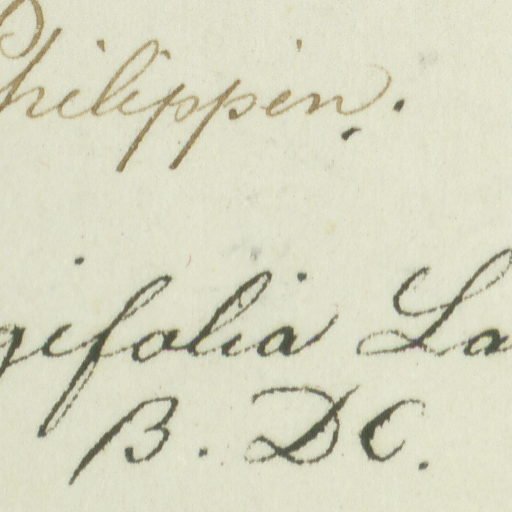 Philippin.
gifolia La
β. DC.